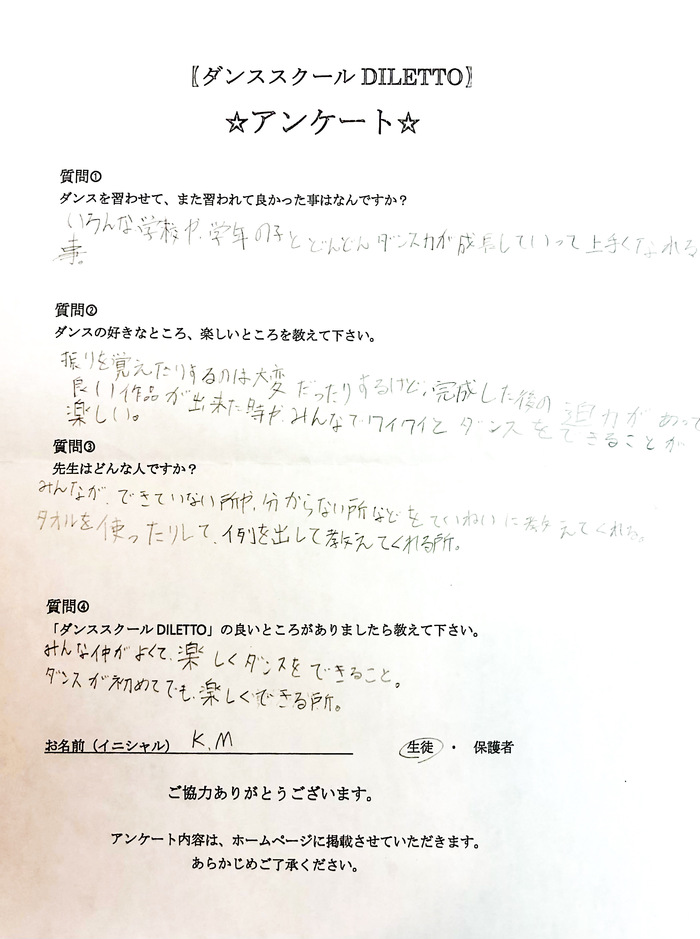 〖ダンススクール DILETTO〗
☆アンケート☆
質問①
ダンスを習わせて、また習われて良かった事はなんですか?
いろんな学校や、学年の子とどんどんダンス力が成長していって上手くなれる
事。
質問②
ダンスの好きなところ、楽しいところを教えて下さい。
振りを覚えたりするのは大変だったりするけど、完成した後の迫力があって
良い作品が出来た時や、みんなでワイワイとダンスをできることが
楽しい。
質問③
先生はどんな人ですか?
みんなが、できていない所や、分からない所などをていねいに教えてくれる。
タオルを使ったりして、例を出して教えてくれる所。
質問④
「ダンススクール DILETTO」の良いところがありましたら教えて下さい。
みんな仲がよくて、楽しくダンスをできること。
ダンスが初めてでも、楽しくできる所。
お名前(イニシャル) K.M 生徒 ・ 保護者
ご協力ありがとうございます。
アンケート内容は、ホームページに掲載させていただきます。
あらかじめご了承ください。